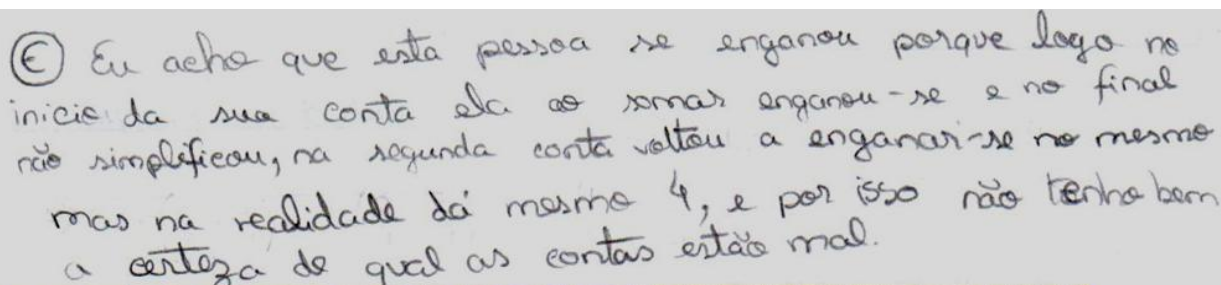 Ⓔ Eu acho que esta pessoa se enganou porque logo no
inicio da sua conta ela ao somar enganou-se e no final
não simplificou, na segunda conta voltou a enganar-se no mesmo
mas na realidade dá mesmo 4, e por isso não tenho bem
a certeza de qual as contas estão mal.